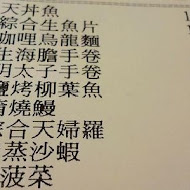 天丼魚
綜合生魚片
咖哩烏龍麵
生海膽手卷
明太子手卷
鹽烤柳葉魚
蒲燒鰻
綜合天婦羅
蒸沙蝦
菠菜